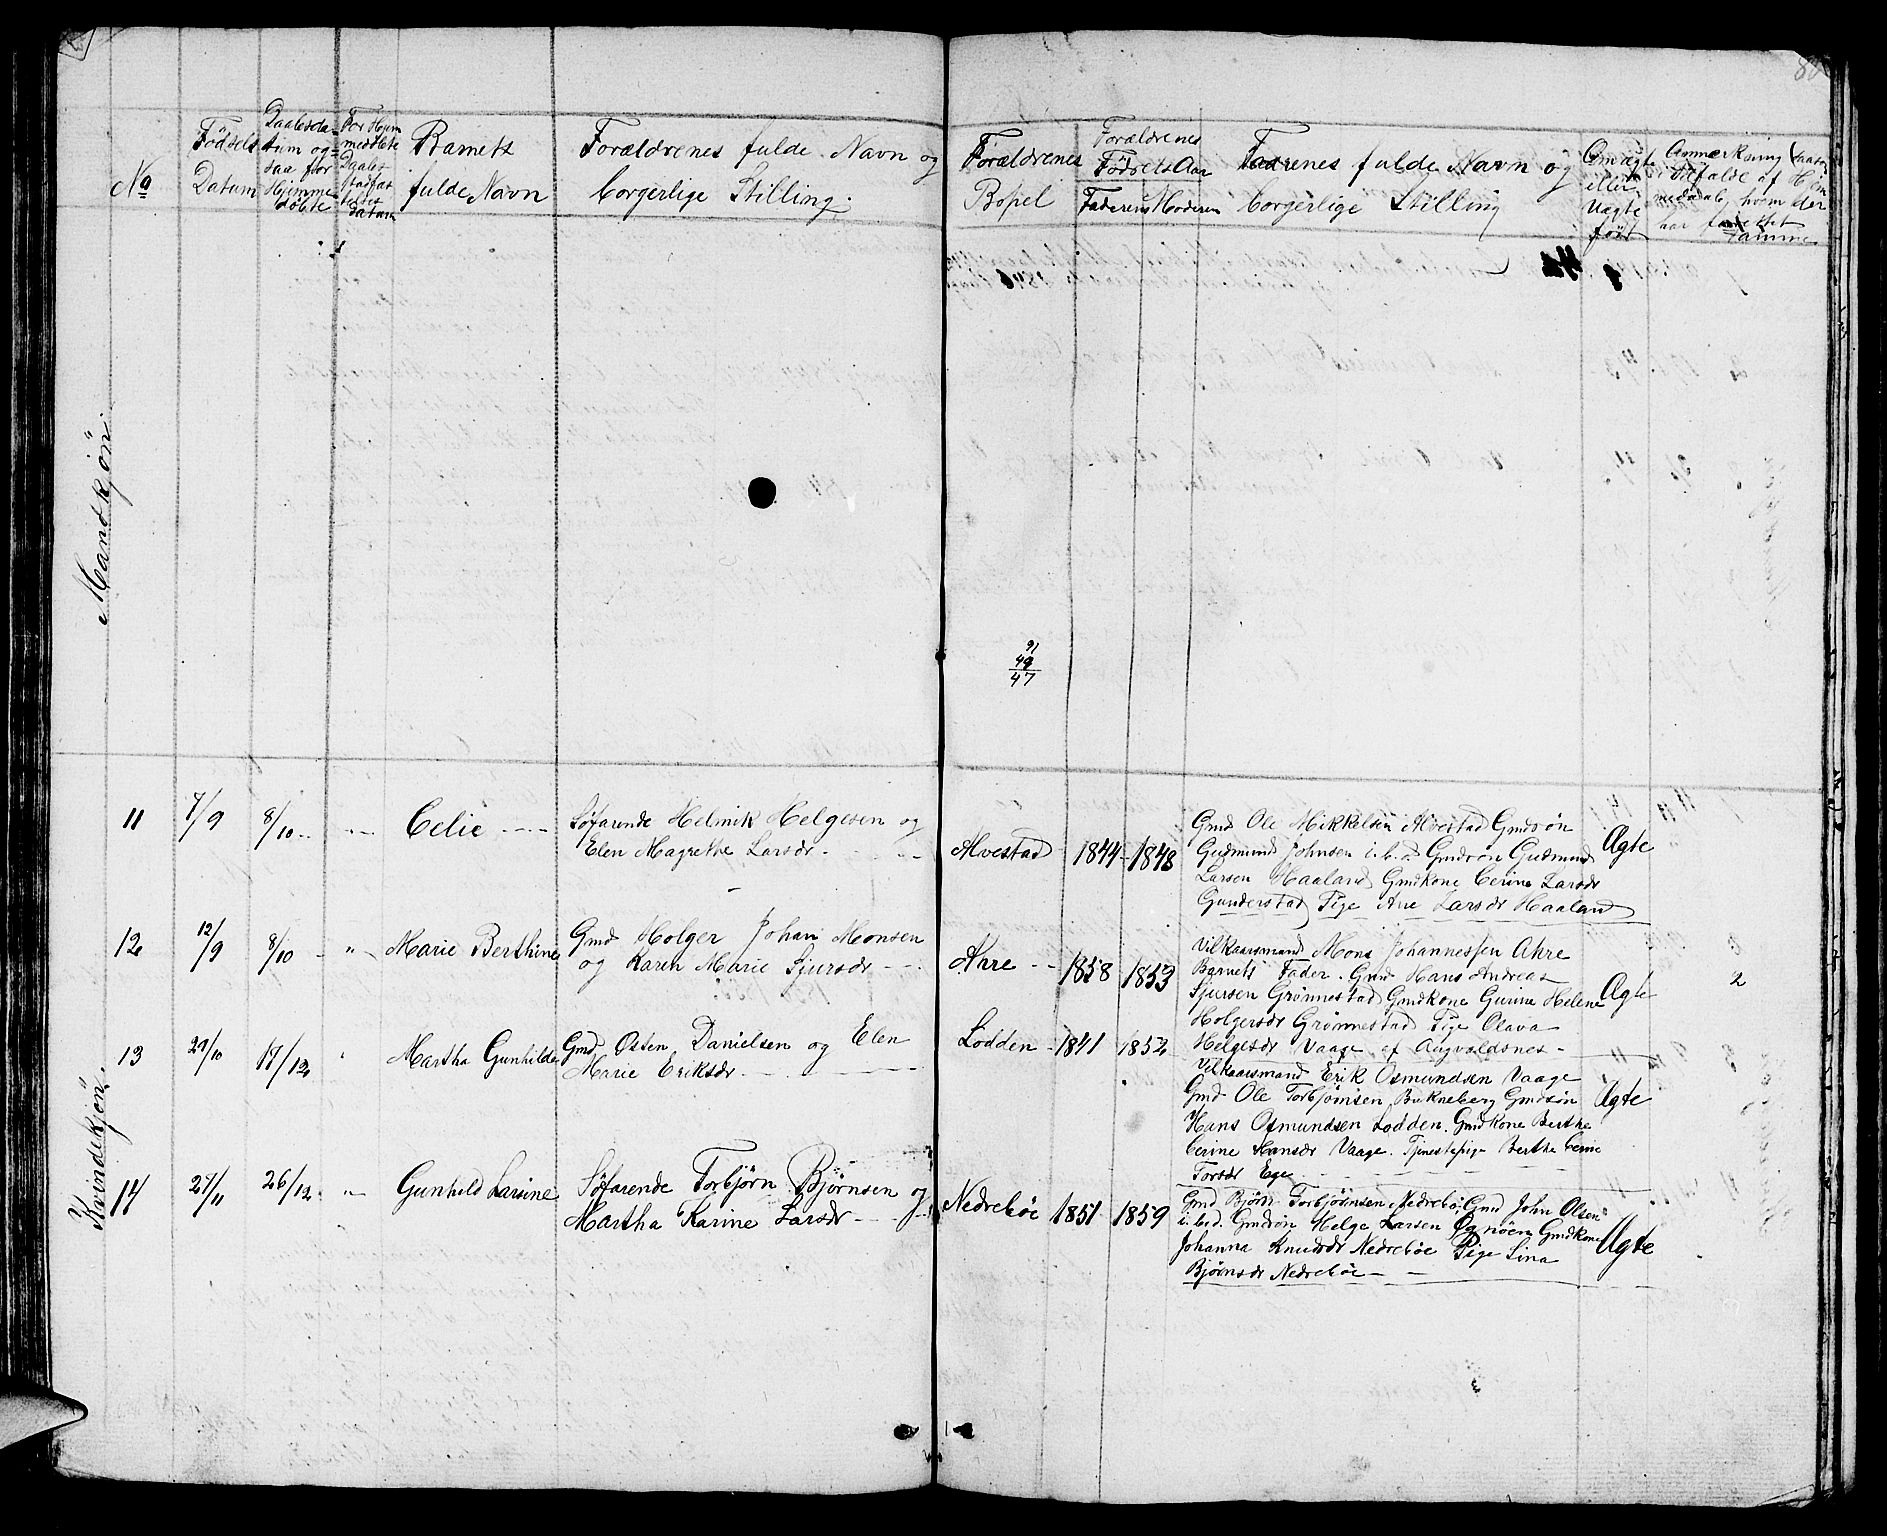 80
No
Fødsels
Datum
Daabsda-
tum og-
saa for
Hjemme-
døbte
For Hjem
meddøbte
Daabs
Stadfæs
telses
Datum
Barnets
fulde Navn
Forældrenes fulde Navn og
borgerlige Stilling.
Forældrenes
Bopel
Forældrenes
Fødsels Aar
Faderens Moderen
Fadrenes fulde Navn og
borgerlige Stilling
Om ægte
eller
Uægte
født
Anmærkning (saasom
i Tilfælde af Hjem
medaab, hvem der
har forrettet
samme
Mandkjön.
91
44
47
Kvindekjön.
11 7/9 8/10 -- " Celie ---- Søfarende Helmik Helgesen og
Elen Magrethe Larsdr - - -
Alvestad 1844 - 1848
Gmd Ole Mikkelsen Alvestad Gmdsøn
Gudmund Johnsen i.b.d Gmdsøn Gudmund
Larsen Haaland Gmdkone Cerine Larsdr
Gunderstad Pige Ane Larsdr Haaland
Ægte
12 12/9 8/10 - " Marie Berthine Gmd Holger Johan Monsen
og Karen Marie Sjursdr - - -
Ahre - - 1858 1853
Vilkaarsmand Mons Johannessen Ahre
Barnets Fader. Gmd Hans Andreas
Sjursen Grønnestad Gmdkone Gurine Helene
Holgersdr Grønnestad Pige Olava
Helgesdr Vaage af Augvaldsnes -
Ægte 2
13 29/10 17/12 " Martha Gunhilde Gmd Osten Danielsen og Elen
Marie Eriksdr - - -
Lodden - 1841 1852
Vilkaarsmand Erik Osmundsen Vaage
Gmd Ole Torbjørnsen Bukneberg Gmdsøn
Hans Osmundsen Lodden. Gmdkone Berthe
Cerine Hansdr Vaage. Tjenestepige Berthe Cerine
Torsdr Ege
Ægte
14 27/11 26/12 " Gunhild Larsine Søfarende Torbjørn Bjørnsen og
Martha Karine Larsdr - - -
Nedrebøe 1851 1859
Gmd Bjørn Torbjørnsen Nedrebø. Gmd John Olsen
i.b.d. Gmdsøn Helge Larsen Øgnøen Gmdkone
Johanna Knudsdr Nedrebøe Pige Sina
Bjørnsdr Nedrebøe -
Ægte